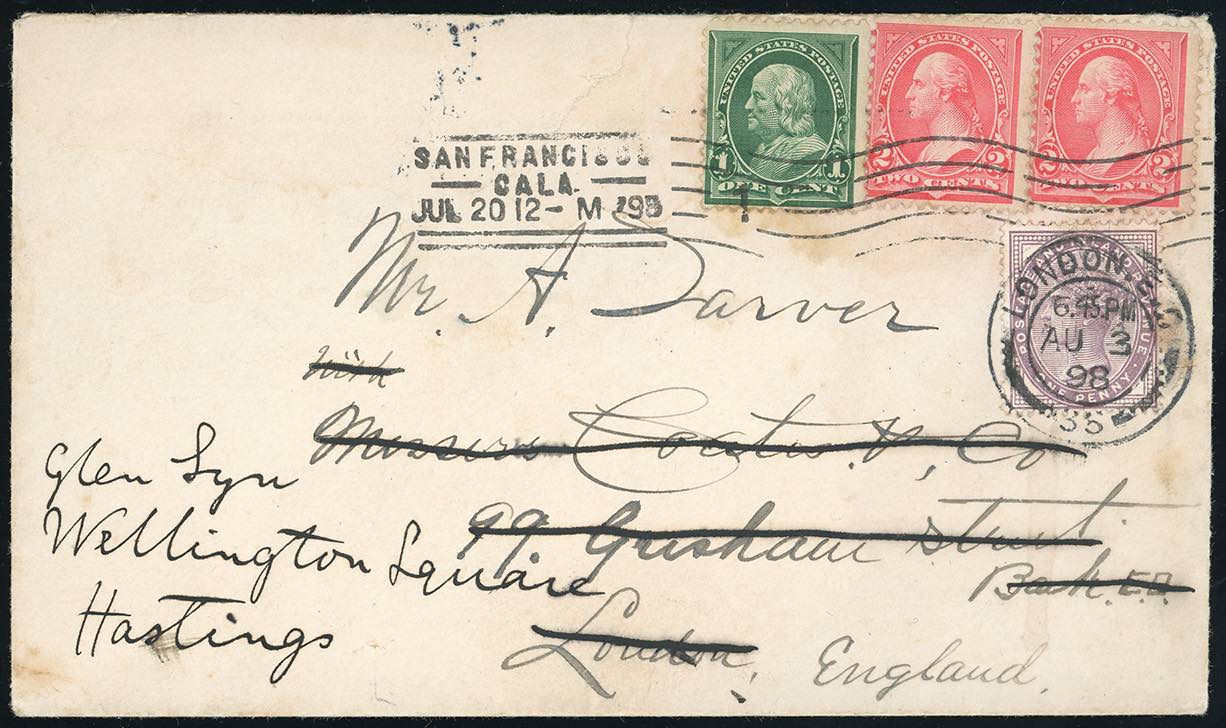 UNITED STATES POSTAGE
1 1
ONE CENT
UNITED STATES POSTAGE
2 2
TWO CENTS
UNITED STATES POSTAGE
2 2
TWO CENTS
SAN FRANCISCO
CALA.
JUL 20 12-M '98
1
LONDON. E.C
6.45.PM
AU 3
98
35
PENNY
Mr. A. Sarver
Messers Coates. &. Co
99. Grishaur Street
Bank. E.C.
London, England.
Glen Lyn
Wellington Square
Hastings